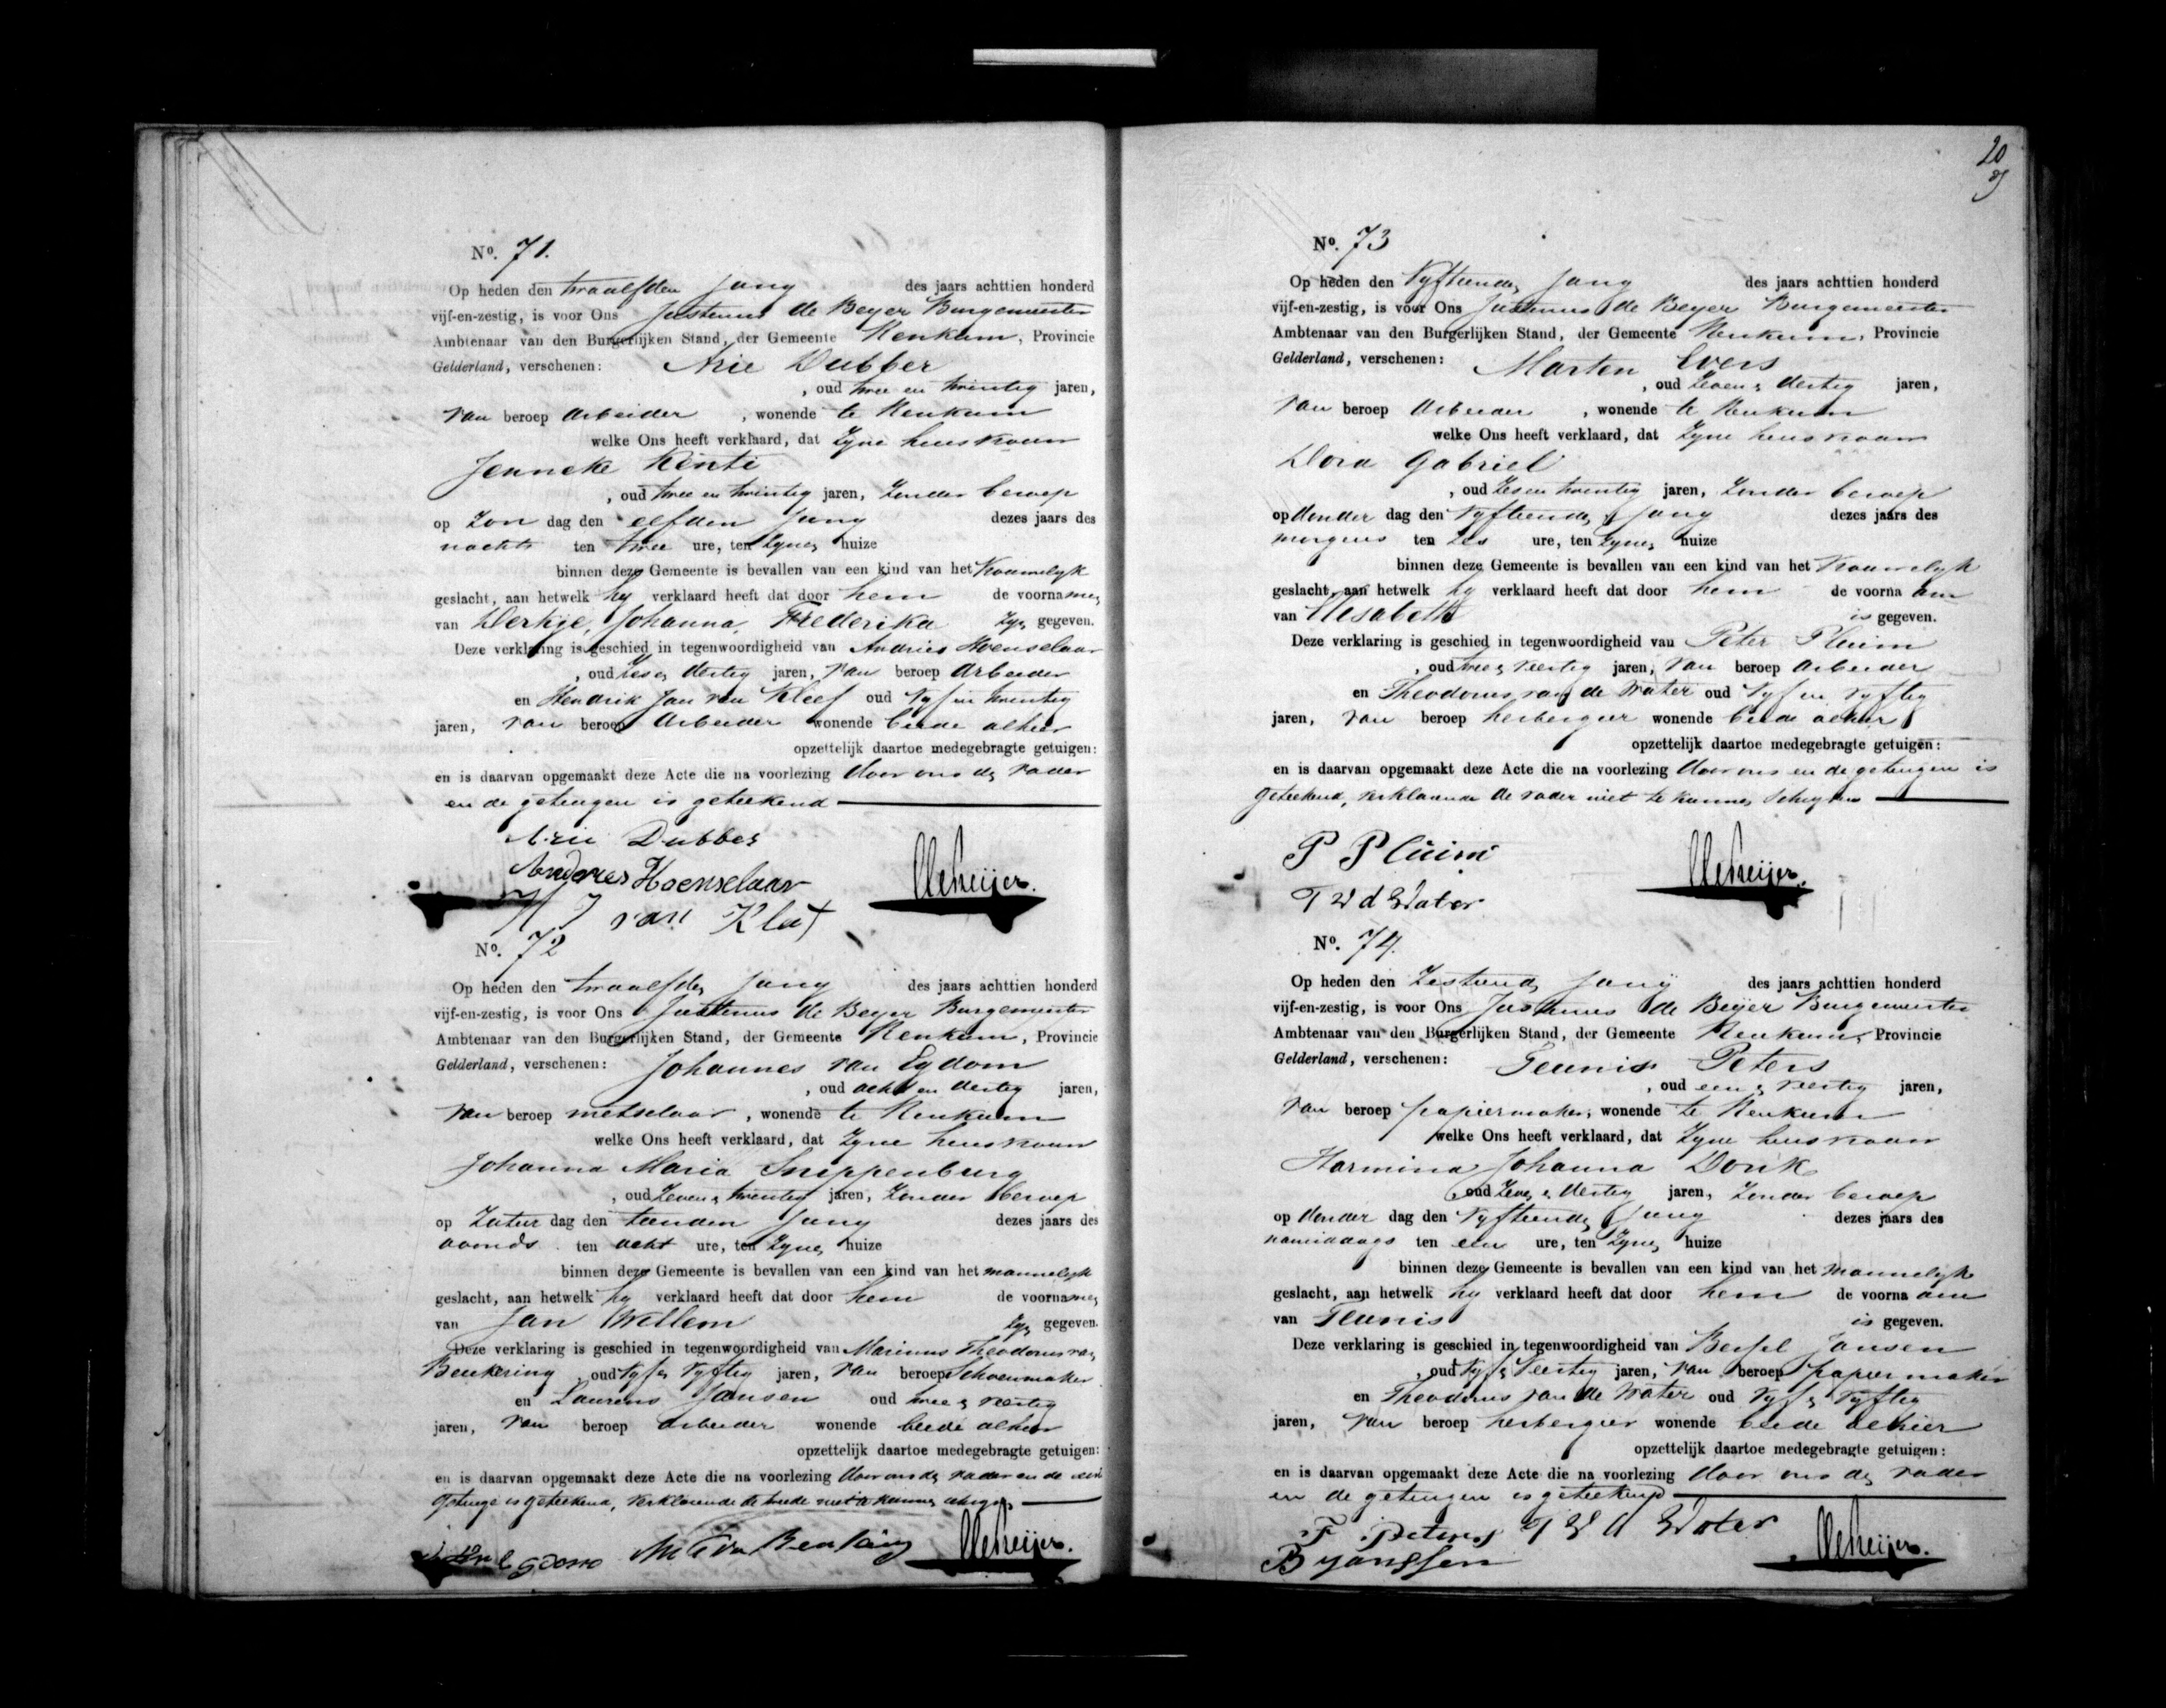 No. 71.
Op heden den twaalfden Juny des jaars achttien honderd
vijf-en-zestig, is voor Ons Justenus de Beyer Burgemeester
Ambtenaar van den Burgerlijken Stand, der Gemeente Renkum, Provincie
Gelderland, verschenen: Arie Dubber
, oud twee en twintig jaren,
van beroep Arbeider , wonende te Renkum
welke Ons heeft verklaard, dat Zyne huisvrouw
Jenneke
, oud twee en twintig jaren, Zonder beroep
op Zon dag den elfden Juny dezes jaars des
nachts ten twee ure, ten Zynen huize
binnen deze Gemeente is bevallen van een kind van het Vrouwelyk
geslacht, aan hetwelk hy verklaard heeft dat door hem de voornamen
van Derkje, Johanna, Frederika Zyn gegeven.
Deze verklaring is geschied in tegenwoordigheid van Andries Hoenselaar
, oud Zes en dertig jaren, van beroep Arbeider
en Hendrik Jan van Kleef oud vyf en twintig
jaren, van beroep Arbeider wonende beide alhier
opzettelijk daartoe medegebragte getuigen:
en is daarvan opgemaakt deze Acte die na voorlezing door ons de vader
en de getuigen is geteekend
Arie Dubber
Andries Hoenselaar
H J van Klef
No. 72
Op heden den twaalfden Juny des jaars achttien honderd
vijf-en-zestig, is voor Ons Justenus de Beyer Burgemeester
Ambtenaar van den Burgerlijken Stand, der Gemeente Renkum, Provincie
Gelderland, verschenen: Johannes van Egdom
, oud acht en dertig jaren,
van beroep metselaar , wonende te Renkum
welke Ons heeft verklaard, dat Zyne huisvrouw
Johanna Maria Snippenburg
, oud Zeven en twintig jaren, Zonder beroep
op Zatur dag den tienden Juny dezes jaars des
avonds ten acht ure, ten Zynen huize
binnen deze Gemeente is bevallen van een kind van het mannelyk
geslacht, aan hetwelk hy verklaard heeft dat door hem de voornamen
van Jan Willem Zyn gegeven.
Deze verklaring is geschied in tegenwoordigheid van Marinus Theodorus van
Beukering oud vyf en vyftig jaren, van beroep Schoenmaker
en Laurens Jansen oud twee en veertig
jaren, van beroep Arbeider wonende beide alhier
opzettelijk daartoe medegebragte getuigen:
en is daarvan opgemaakt deze Acte die na voorlezing door ons de vader en de eerste
getuige is geteekend, verklarende de tweede niet te kunnen schryven
20
No. 73
Op heden den Vyftienden Juny des jaars achttien honderd
vijf-en-zestig, is voor Ons Justenus de Beyer Burgemeester
Ambtenaar van den Burgerlijken Stand, der Gemeente Renkum, Provincie
Gelderland, verschenen: Marten Evers
, oud Zeven en dertig jaren,
van beroep Arbeider , wonende te Renkum
welke Ons heeft verklaard, dat Zyne huisvrouw
Dora Gabriel
, oud Zes en twintig jaren, Zonder beroep
op donder dag den vyftienden Juny dezes jaars des
morgens ten zes ure, ten Zynen huize
binnen deze Gemeente is bevallen van een kind van het Vrouwelyk
geslacht, aan hetwelk hy verklaard heeft dat door hem de voorna am
van Elesabeth is gegeven.
Deze verklaring is geschied in tegenwoordigheid van Peter Pluim
, oud twee en veertig jaren, van beroep Arbeider
en Theodorus van de Water oud vyf en vyftig
jaren, van beroep herbergier wonende beide alhier
opzettelijk daartoe medegebragte getuigen:
en is daarvan opgemaakt deze Acte die na voorlezing door ons en de getuigen is
geteekend, verklarende de vader niet te kunnen schryven
P Pluim
T v d Water
No. 74.
Op heden den Zestienden Juny des jaars achttien honderd
vijf-en-zestig, is voor Ons Justenus de Beijer Burgemeester
Ambtenaar van den Burgerlijken Stand, der Gemeente Renkum, Provincie
Gelderland, verschenen: Teunis Peters
, oud een en veertig jaren,
van beroep papiermaker, wonende te Renkum
welke Ons heeft verklaard, dat Zyne huisvrouw
Harmina Johanna Donk
, oud Zeven en dertig jaren, Zonder beroep
op donder dag den vyftienden Juny dezes jaars des
namiddags ten een ure, ten Zynen huize
binnen deze Gemeente is bevallen van een kind van het mannelyk
geslacht, aan hetwelk hy verklaard heeft dat door hem de voorna am
van Teunis is gegeven.
Deze verklaring is geschied in tegenwoordigheid van Bessel Jansen
, oud vyf en Veertig jaren, van beroep papiermaker
en Theodorus van de Water oud vyf en vyftig
jaren, van beroep herbergier wonende beide alhier
opzettelijk daartoe medegebragte getuigen:
en is daarvan opgemaakt deze Acte die na voorlezing door ons de vader
en de getuigen is geteekend
T Peters T v d Water
B Janssen